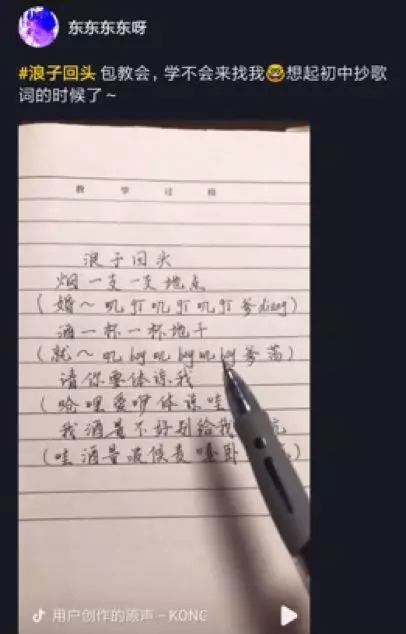 东东东东呀
#浪子回头 包教会，学不会来找我🤓想起初中抄歌
词的时候了～
教 学 过 程
浪子回头
烟一支一支地点
(婚～叽 叽 叽 爹diang)
酒一杯一杯地干
(就～叽 叽 叽 爹 荡)
请你要体谅我
(哈哩爱啰体谅哇
我酒量不好别给我
(哇酒量
用户创作的原声 – KONG